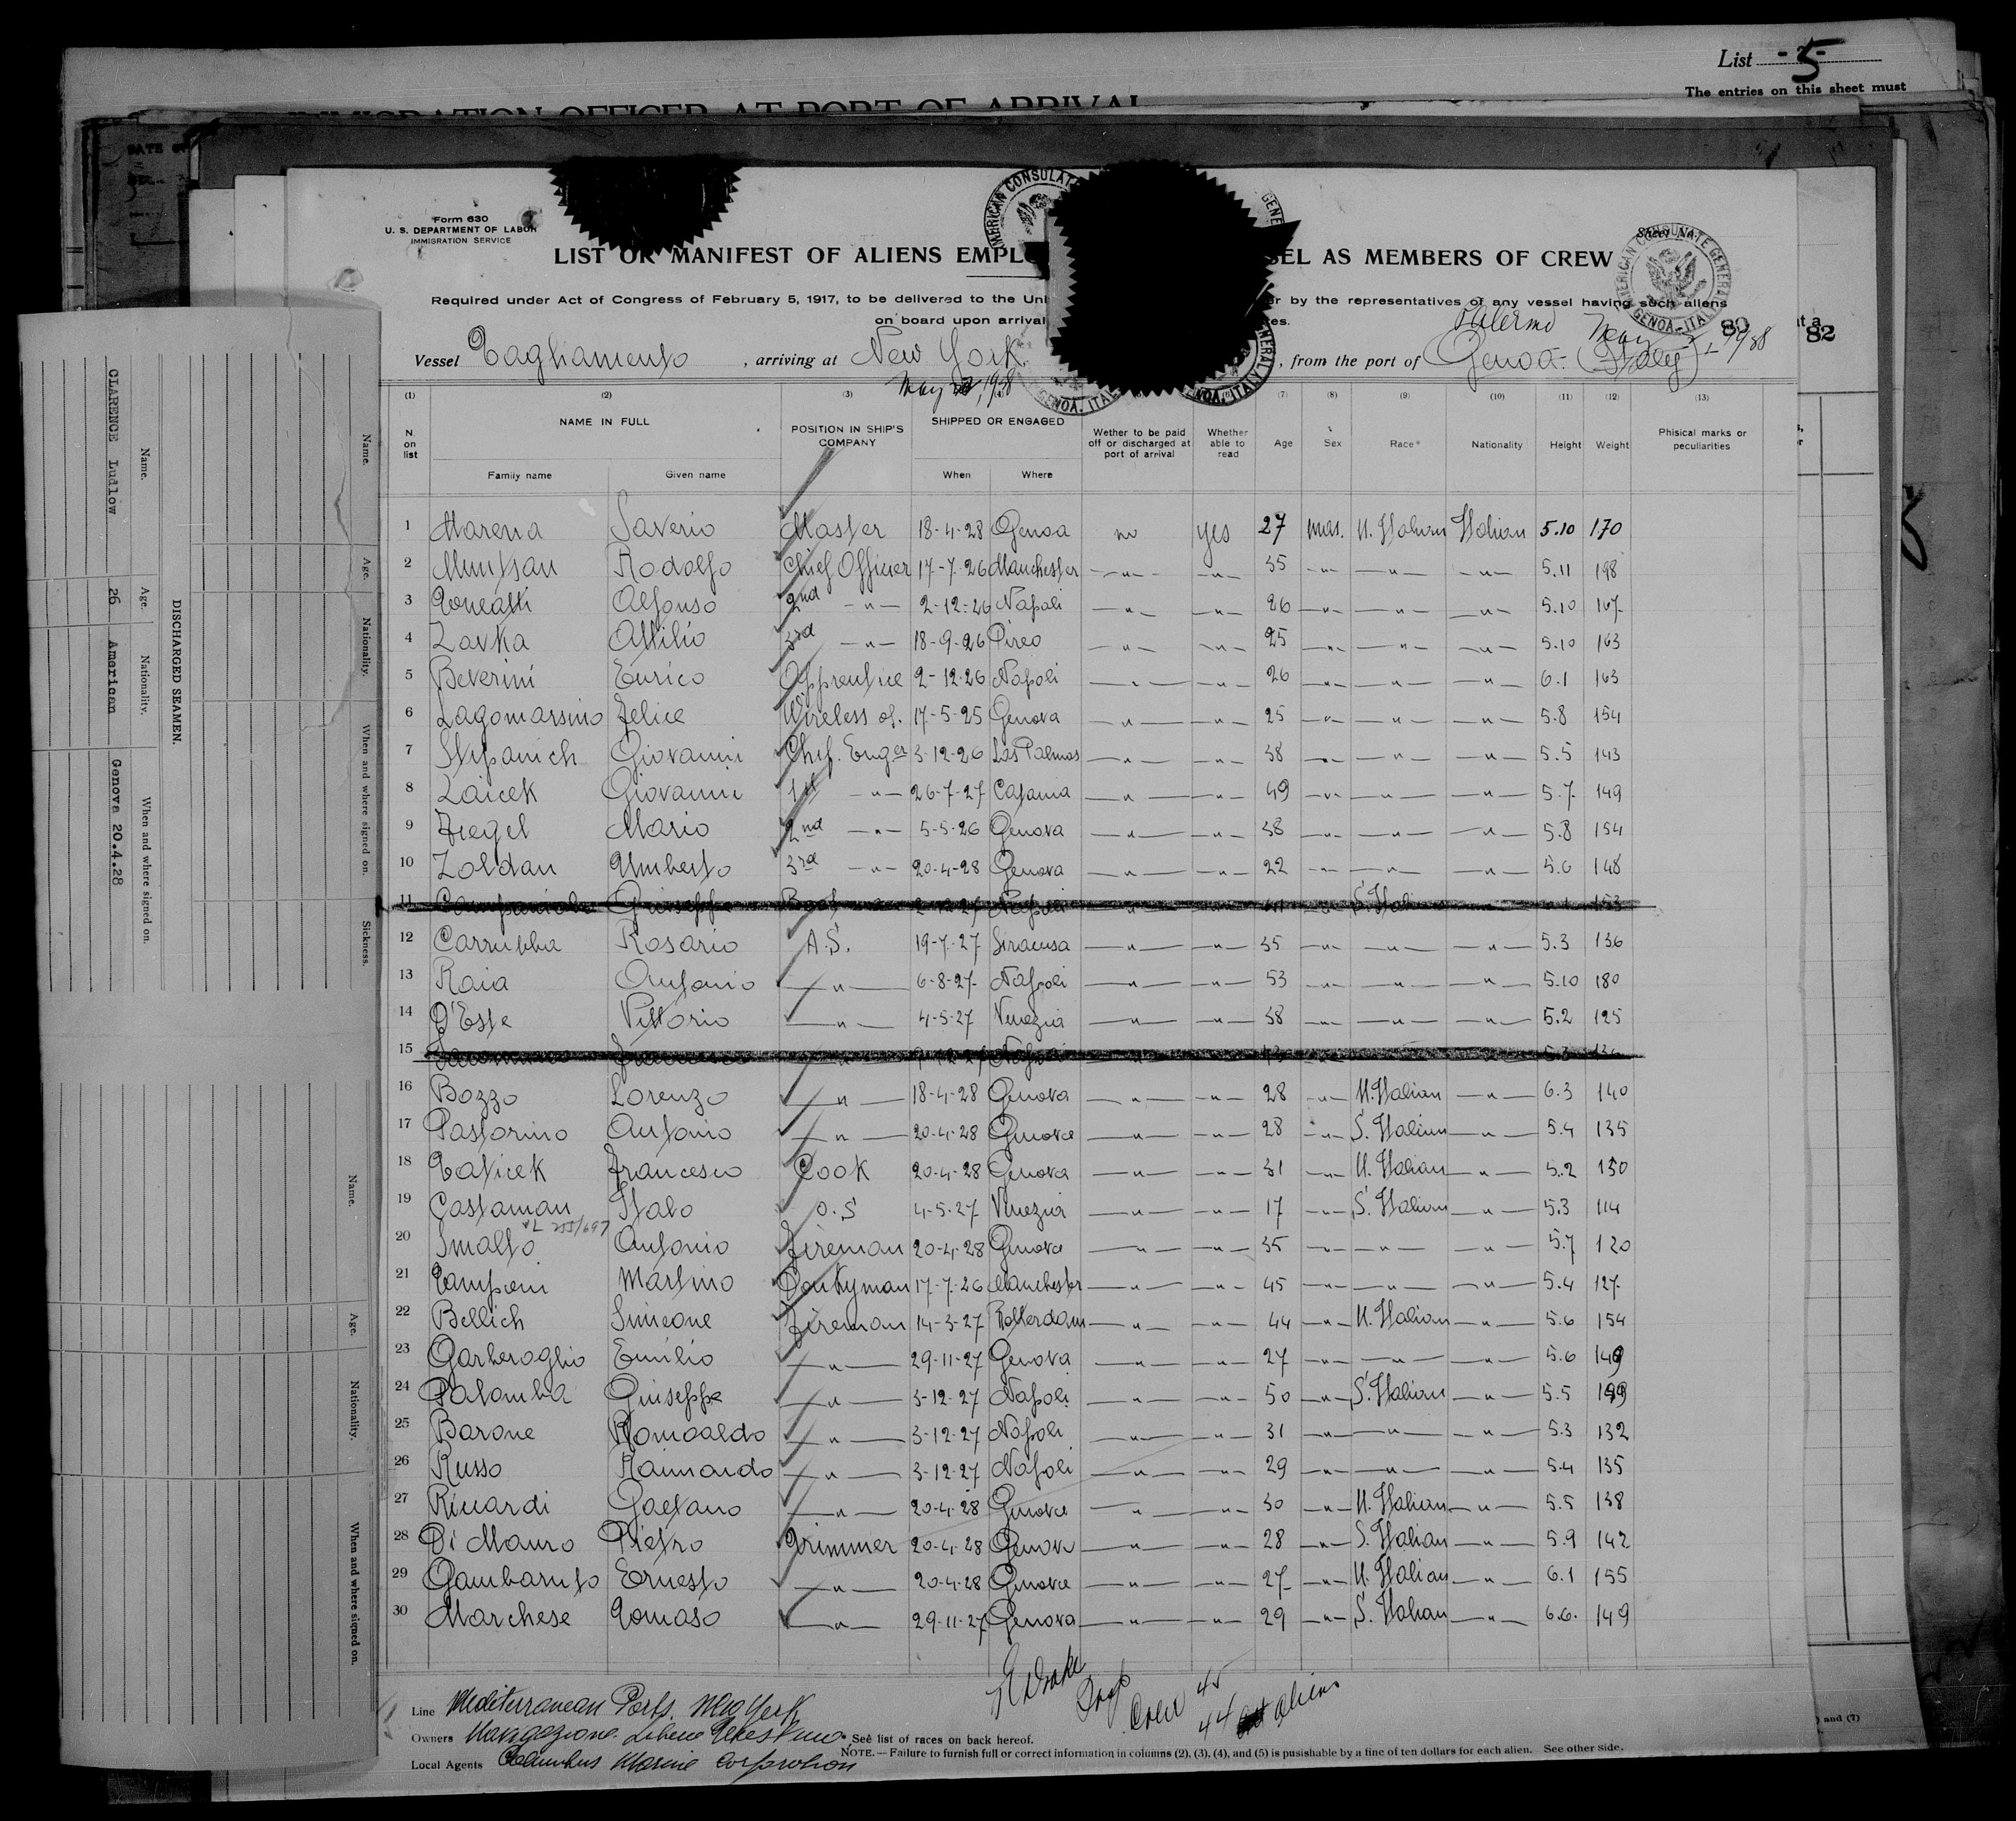 List - 5 -
The entries on this sheet must
IMMIGRATION OFFICER AT PORT OF ARRIVAL
Form 630
U. S. DEPARTMENT OF LABOR
IMMIGRATION SERVICE
AMERICAN CONSULATE GENERAL GENOA, ITALY
LIST OR MANIFEST OF ALIENS EMPLO SEL AS MEMBERS OF CREW
Sheet No.
Required under Act of Congress of February 5, 1917, to be delivered to the Uni er by the representatives of any vessel having such aliens
on board upon arrival tes.
Palermo May
80
82
Vessel Tagliamento , arriving at New York , from the port of Genoa - (Italy)
May 1928
(1) (2) (3) (7) (8) (9) (10) (11) (12) (13)
N. on list NAME IN FULL POSITION IN SHIP'S COMPANY SHIPPED OR ENGAGED Wether to be paid off or discharged at port of arrival Whether able to read Age Sex Race* Nationality Height Weight Phisical marks or peculiarities
Family name Given name When Where
1 Marena Saverio Master 18-4-28 Genoa no yes 27 mas. N. Italian Italian 5.10 170
2 Rodolfo Chief Officer 17-7-26 Manchester -"- -"- 35 -"- -"- -"- 5.11 198
3 Alfonso 2nd -"- 2-12-26 Napoli -"- -"- 26 -"- -"- -"- 5.10 167
4 Attilio 3rd -"- 18-9-26 Pireo -"- -"- 25 -"- -"- -"- 5.10 163
5 Beverini Enrico Apprentice 2-12-26 Napoli -"- -"- 26 -"- -"- -"- 6.1 163
6 Lagomassino Felice Wireless of. 17-5-25 Genova -"- -"- 25 -"- -"- -"- 5.8 154
7 Stipanich Giovanni Chif. Enger 3-12-26 Las Palmas -"- -"- 38 -"- -"- -"- 5.5 143
8 Zaicek Giovanni 1st -"- 26-7-27 Catania -"- -"- 49 -"- -"- -"- 5.7 149
9 Fiegel Mario 2nd -"- 5-5-26 Genova -"- -"- 38 -"- -"- -"- 5.8 154
10 Zoldan Umberto 3rd -"- 20-4-28 Genova -"- -"- 22 -"- -"- -"- 5.6 148
11 Giuseppe S. Italian 153
12 Carrubba Rosario A.S. 19-7-27 Siracusa -"- -"- 35 -"- -"- -"- 5.3 136
13 Raia Antonio -"- 6-8-27 Napoli -"- -"- 53 -"- -"- -"- 5.10 180
14 D'Este Vittorio -"- 4-5-27 Venezia -"- -"- 38 -"- -"- -"- 5.2 125
15
16 Bozzo Lorenzo -"- 18-4-28 Genova -"- -"- 28 -"- N. Italian -"- 6.3 140
17 Pastorino Antonio -"- 20-4-28 Genova -"- -"- 28 -"- S. Italian -"- 5.4 135
18 Tavicek Francesco Cook 20-4-28 Genova -"- -"- 31 -"- N. Italian -"- 5.2 130
19 Castaman Italo O.S 4-5-27 Venezia -"- -"- 17 -"- S. Italian -"- 5.3 114
20 Smalto Antonio Fireman 20-4-28 Genova -"- -"- 35 -"- -"- -"- 5.7 120
21 Martino Donkyman 17-7-26 Manchester -"- -"- 45 -"- -"- -"- 5.4 127
22 Bellich Simeone Fireman 14-3-27 Rotterdam -"- -"- 44 -"- N. Italian -"- 5.6 154
23 Garberoglio Emilio -"- 29-11-27 Genova -"- -"- 27 -"- -"- -"- 5.6 149
24 Palomba Giuseppe -"- 3-12-27 Napoli -"- -"- 50 -"- S. Italian -"- 5.5
25 Barone Romoaldo -"- 3-12-27 Napoli -"- -"- 31 -"- -"- -"- 5.3 132
26 Russo Raimondo -"- 3-12-27 Napoli -"- -"- 29 -"- -"- -"- 5.4 135
27 Ricciardi Gaetano -"- 20-4-28 Genova -"- -"- 30 -"- N. Italian -"- 5.5 138
28 Di Mauro Pietro Trimmer 20-4-28 Genova -"- -"- 28 -"- S. Italian -"- 5.9 142
29 Gambaruto Ernesto -"- 20-4-28 Genova -"- -"- 27 -"- N. Italian -"- 6.1 155
30 Marchese Tomaso -"- 29-11-27 Genova -"- -"- 29 -"- S. Italian -"- 6.6. 149
Crew 45
44 aliens
Line Mediterranean Ports New York
Owners Navigazione Libera Triestina * See list of races on back hereof.
NOTE.— Failure to furnish full or correct information in columns (2), (3), (4), and (5) is pusishable by a fine of ten dollars for each alien. See other side.
Local Agents Columbus Marine Corporation
) and (7)
DISCHARGED SEAMEN.
Name. Age. Nationality. When and where signed on.
CLARENCE Ludlow 26 American Genova 20.4.28
Name. Age. Nationality. When and where signed on. Sickness.
Name. Age. Nationality. When and where signed on.